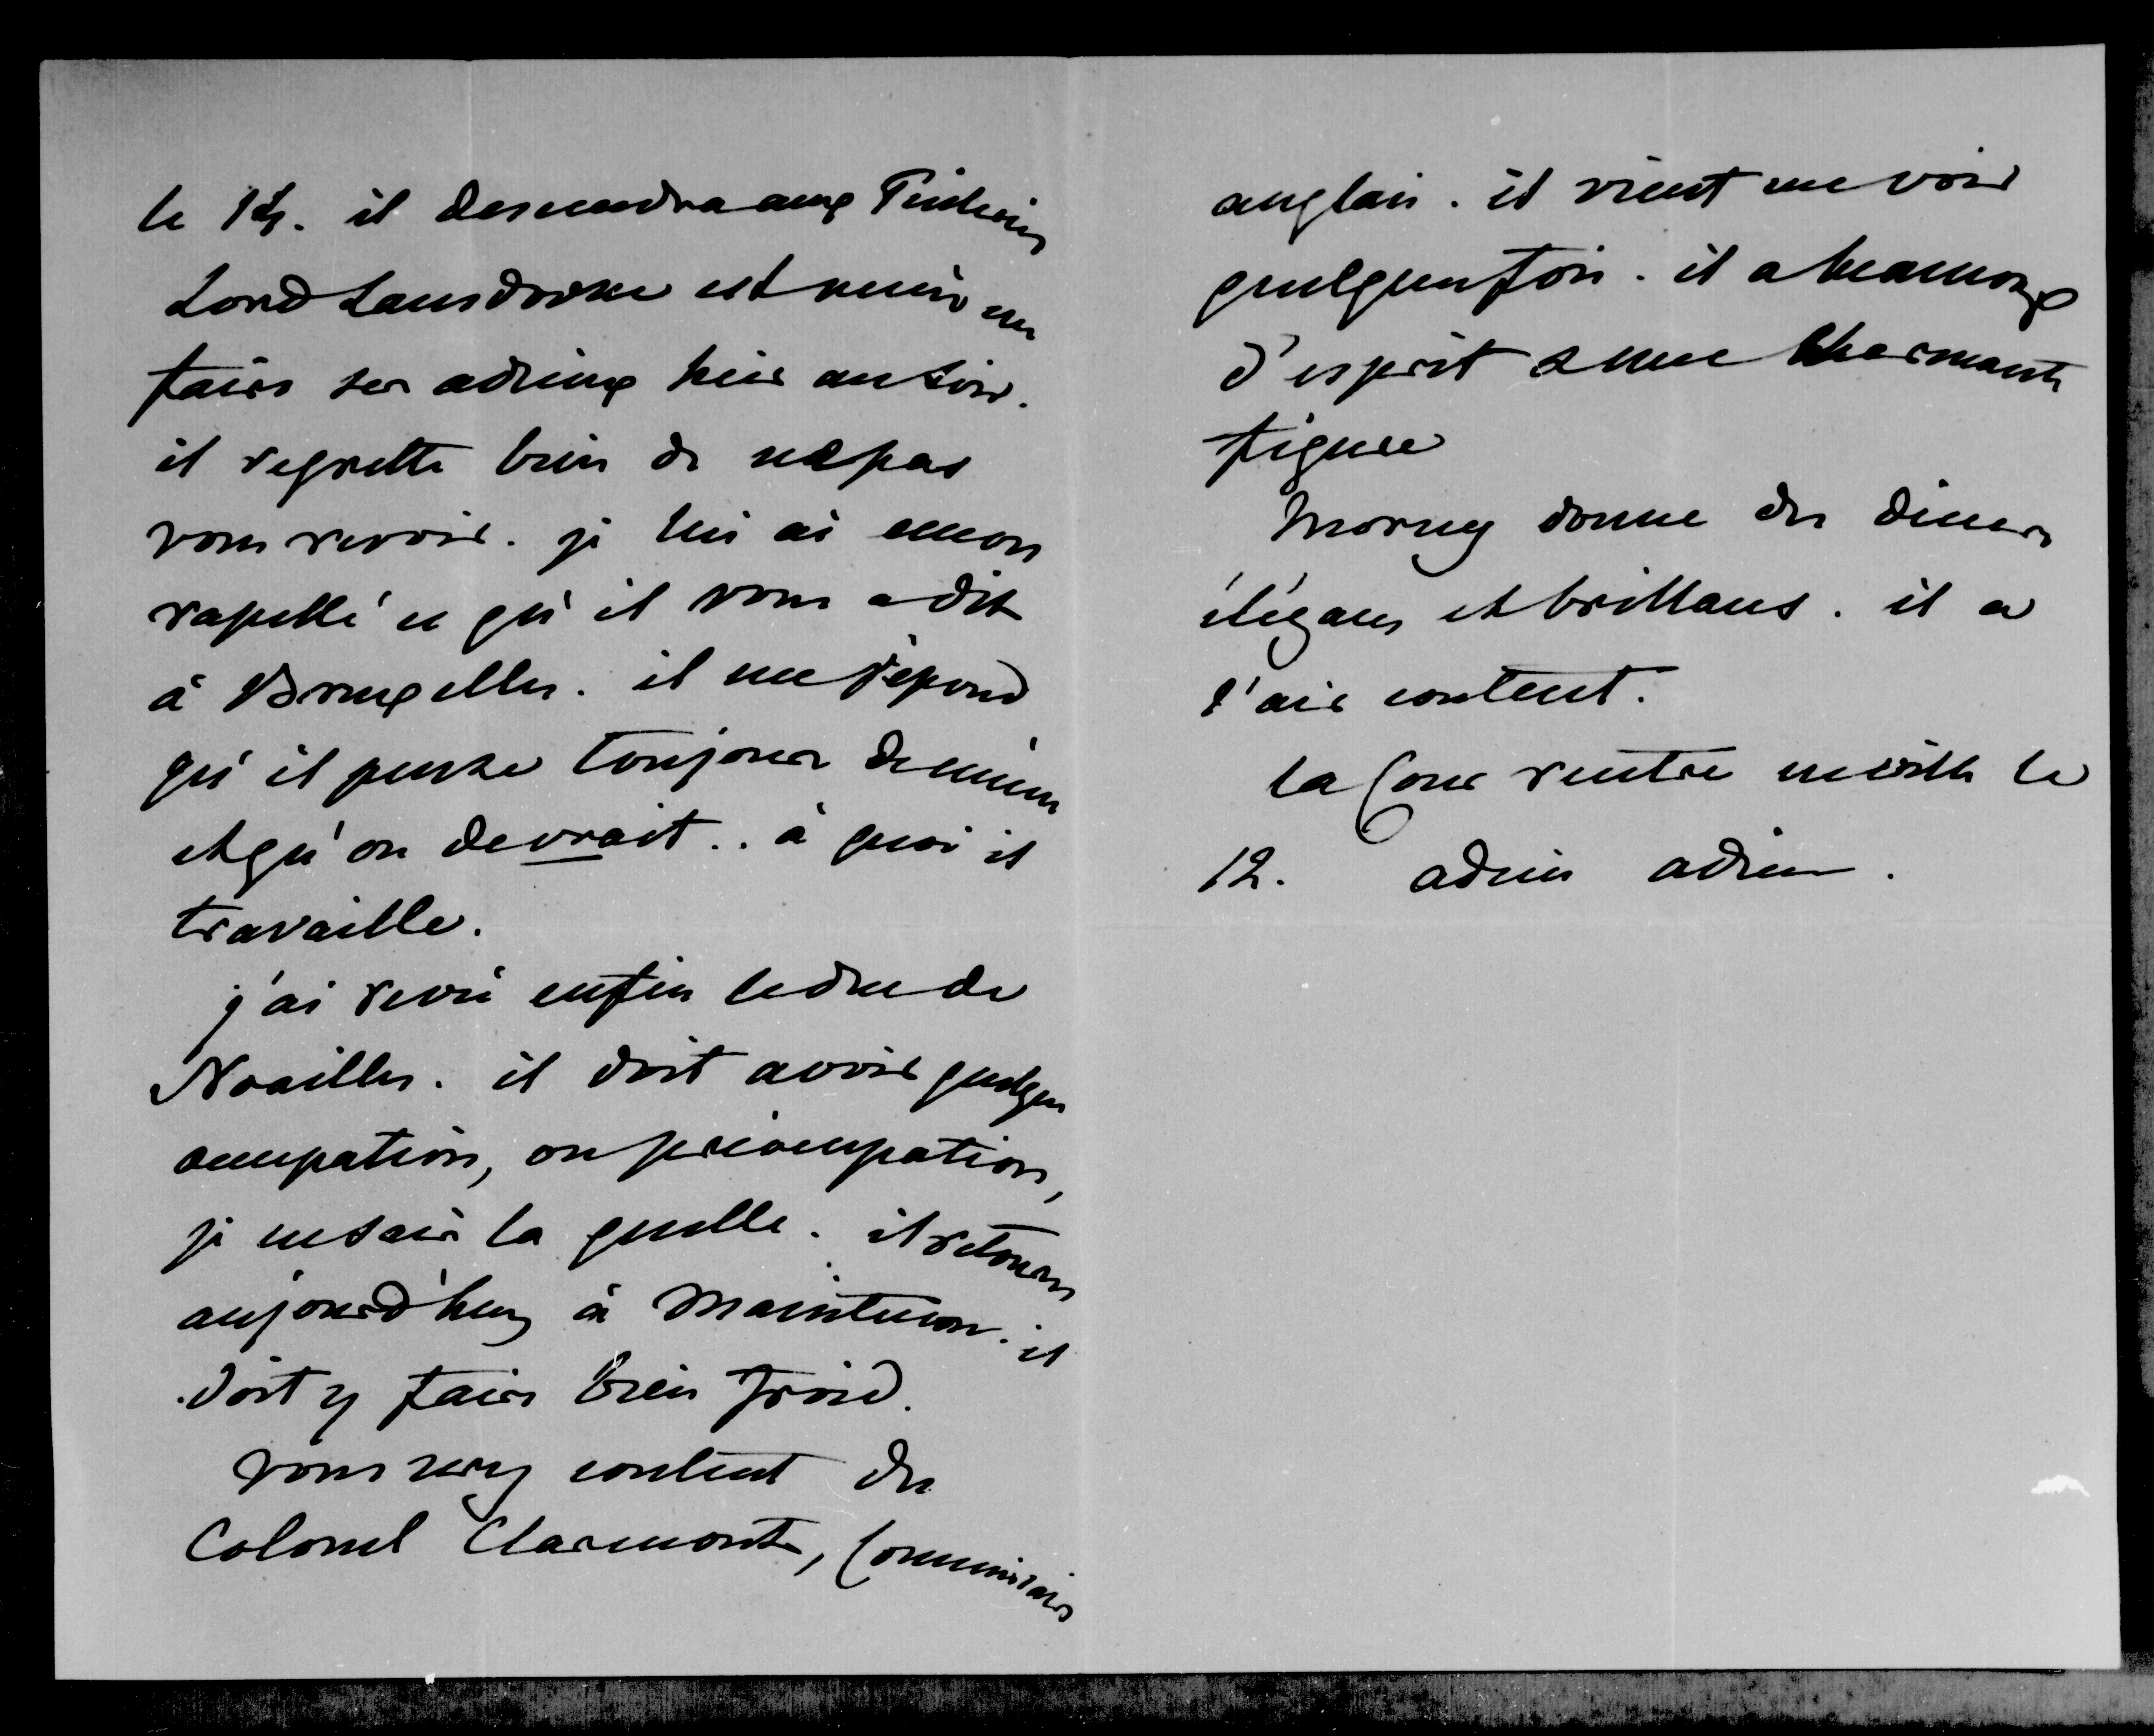 le 14. il descendra aux Tuileries
Lord Lansdowne est venu me
faire ses adieux hier au soir.
il regrette bien de ne pas
vous revoir. je lui ai encore
rapellé ce qu'il vous a dit
à Bruxelles. il me répond
qu'il pense toujours de même
et qu'on devrait.. à quoi il
travaille.
j'ai revu enfin le duc de
Noailles. il doit avoir quelque
occupation, ou préoccupation,
je ne sais la quelle. il retourne
aujourd'huy à Maintenon. il
doit y faire bien froid.
vous serez content du
Colonel Claremont, Commissaire
anglais. il vient me voir
quelques fois. il a beaucoup
d'esprit & une charmante
figure
Morny donne des diners
élégans et brillans. il a
l'air content.
la Cour rentre en ville le
12. adieu adieu.